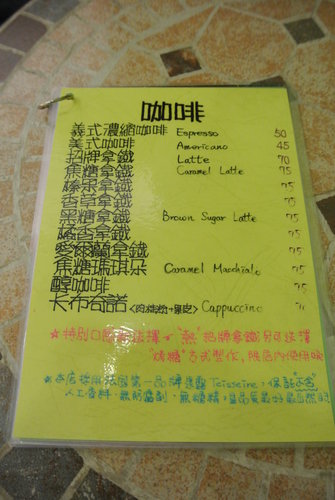 咖啡
義式濃縮咖啡 Espresso 50
美式咖啡 Americano 45
招牌拿鐵 Latte 70
焦糖拿鐵 Caramel Latte 75
榛果拿鐵 75
香草拿鐵 75
黑糖拿鐵 Brown Sugar Latte 75
橘香拿鐵 75
愛爾蘭拿鐵 75
焦糖瑪琪朵 Caramel Macchiato 75
醇咖啡 75
卡布奇諾<肉桂粉+果皮> Cappuccino
★特別口感 "熱"招牌拿鐵另可選擇
"燒糖"古式製作,限店內使用哦
★本店採用法國第一品牌 Teisseire,保証"不含"
人工香料,無防腐劑,無糖精,